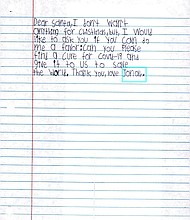 Dear Santa, I don't want
anything for christmas, but I would
like to ask you if you can do
me a favor: can you please
find a cure for covid-19 and
give it to us to save
the world. Thank you, love Jonah.